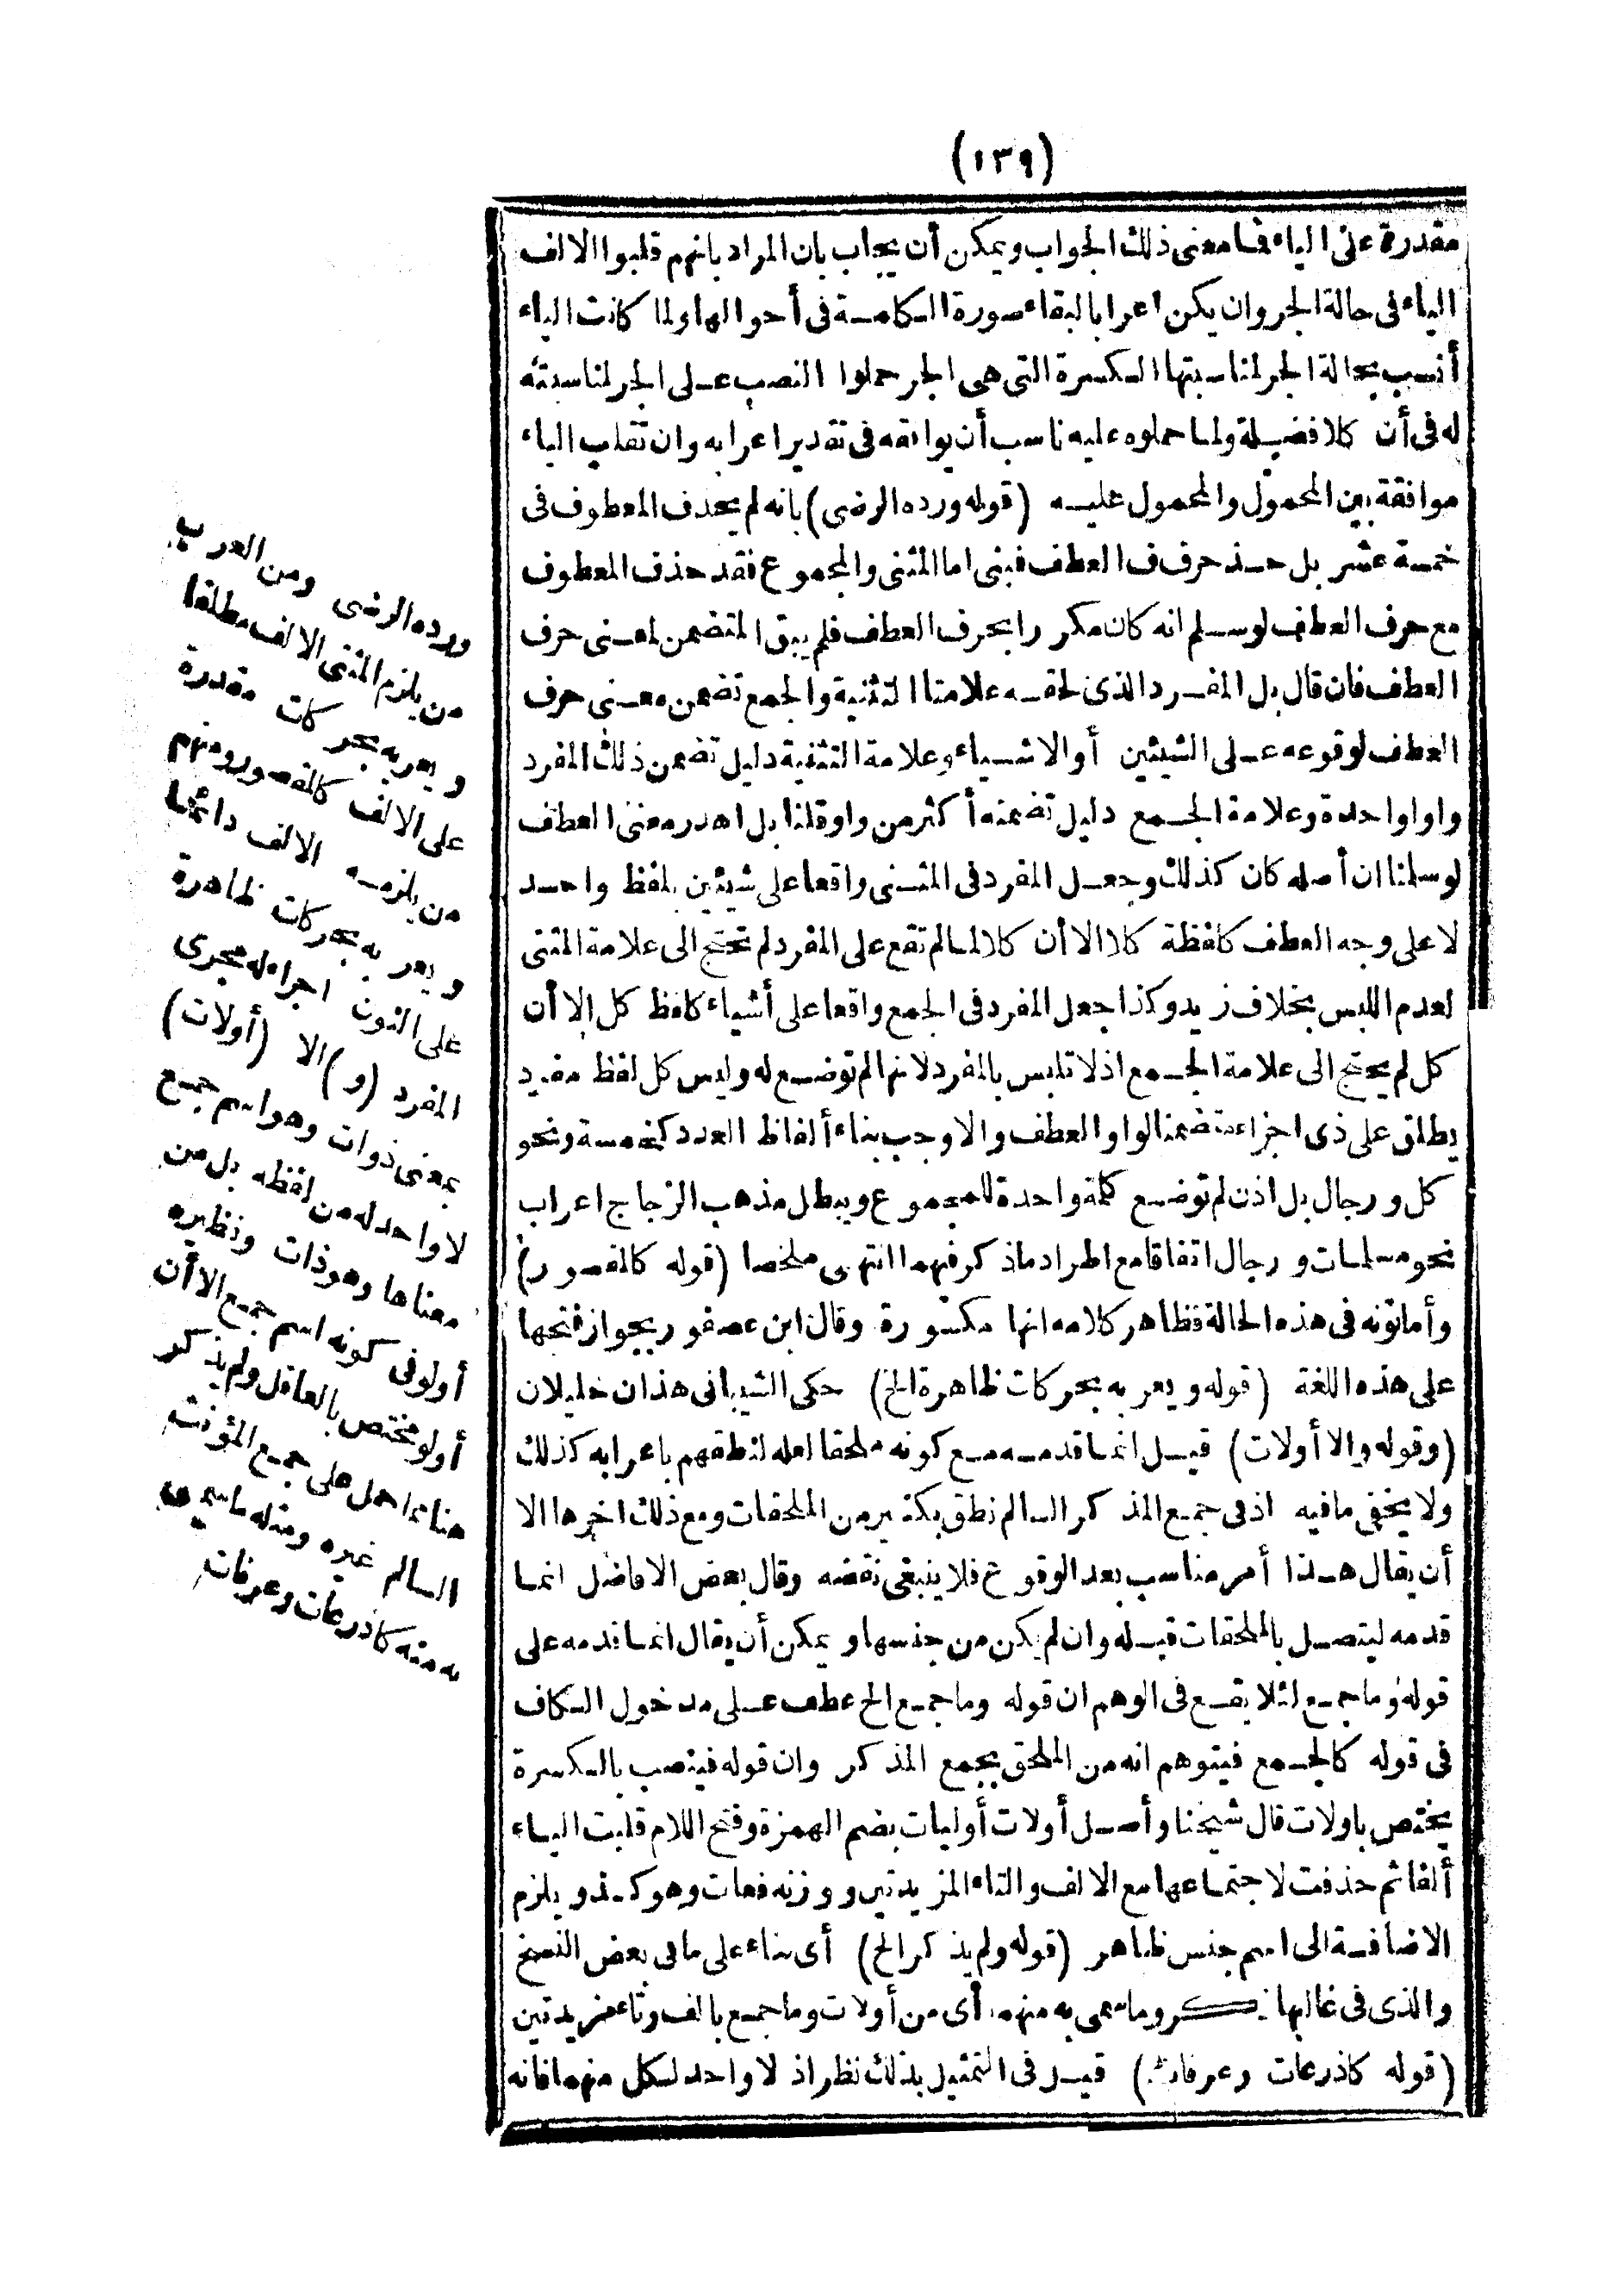 (١٣٩)
مقدرة على الياء فما معنى ذلك الجواب ويمكن أن يجاب بان المراد بانهم قلبوا الالف
الياء فى حالة الجر وان يكن اعرابا لبقاء صورة الكلمة فى أحوالها ولما كانت الياء
أنسب بحالة الجر لمناسبتها الكسرة التى هى الجر حملوا النصب على الجر لمناسبته
له فى أن كلا فضيلة ولما حملوه عليه ناسب أن يوافقه فى تقدير اعرابه وان تقلب الياء
موافقة بين المحمول والمحمول عليه (قوله ورده الرضى) بانه لم يحذف المعطوف فى
خمسة عشر بل حذ حرف ف العطف فبنى اما المثنى والمجموع فقد حذف المعطوف
مع حرف العطف لو سلم انه كان مكررا بحرف العطف فلم يبق المتضمن لمعنى حرف
العطف فان قال بل المفرد الذى لحقه علامتا التثنية والجمع تضمن معنى حرف
العطف لوقوعه على الشيئين أو الاشياء وعلامة التثنية دليل تضمن ذلك المفرد
واوا واحدة وعلامة الجمع دليل تضمنه أكثر من واو قلنا بل اهدر معنى العطف
لو سلمنا ان أصله كان كذلك وجعل المفرد فى المثنى واقعا على شيئين بلفظ واحد
لا على وجه العطف كلفظة كلا الا أن كلا لما لم تقع على المفرد لم تحتج الى علامة المثنى
لعدم اللبس بخلاف زيد وكذا جعل المفرد فى الجمع واقعا على أشياء كلفظ كل إلا أن
كل لم يحتج الى علامة الجمع اذ لا تلبس بالمفرد لانها لم توضع له وليس كل لفظ مفيد
يطلق على ذى اجزاء متضمنا لواو العطف والا وجب بناء ألفاظ العدد كخمسة ونحو
كل ورجال بل اذن لم توضع كلمة واحدة للمجموع ويبطل مذهب الزجاج اعراب
نحو مسلمات ورجال اتفاقا مع اطراد ماذكر فيهما انتهى ملخصا (قوله كالمقصور)
وأما نونه فى هذه الحالة فظاهر كلامه انها مكسورة وقال ابن عصفور بجواز فتحها
على هذه اللغة (قوله ويعربه بحركات ظاهرة الخ) حكى الشيبانى هذان خليلان
(وقوله والا أولات) قيل انما قدمه مع كونه ملحقا لعله لنطقهم باعرابه كذلك
ولا يخفى مافيه اذ فى جمع المذكر السالم نطق بكثير من الملحقات ومع ذلك اخرها الا
أن يقال هذا أمر مناسب بعد الوقوع فلا ينبغى نقضه وقال بعض الافاضل انما
قدمه ليتصل بالملحقات قبله وان لم يكن من جنسها ويمكن أن يقال انما قدمه على
قوله وما جمع لئلا يقع فى الوهم ان قوله وما جمع الخ عطف على مدخول الكاف
فى قوله كالجمع فيتوهم انه من الملحق بجمع المذكر وان قوله فينصب بالكسرة
يختص باولات قال شيخنا وأصل أولات أوليات بضم الهمزة وفتح اللام قلبت الياء
ألفا ثم حذفت لاجتماعها مع الالف والتاء المزيدتين ووزنه فعات وهو كذو يلزم
الاضافة الى اسم جنس ظاهر (قوله ولم يذكر الخ) أى بناء على ما فى بعض النسخ
والذى فى غالبها ذكر وما سمى به منهما أى من أولات وما جمع بالف وتاء مزيدتين
(قوله كاذرعات وعرفات) قيل فى التمثيل بذلك نظر اذ لا واحد لكل منهما فانه
ورده الرضى ومن العرب
من يلزم المثنى الالف مطلقا
ويعربه بحركات مقدرة
على الالف كالمقصور ومنهم
من يلزمه الالف دائما
ويعربه بحركات ظاهرة
على النون اجراء له مجرى
المفرد (و) الا (أولات)
بمعنى ذوات وهو اسم جمع
لا واحد له من لفظه بل من
معناها وهو ذات ونظيره
أولو فى كونه اسم جمع الا أن
أولو مختص بالعاقل ولم يذكر
هنا مما حمل على جمع المؤنث
السالم غيره ومثله ما سمى
به منه كاذرعات وعرفات